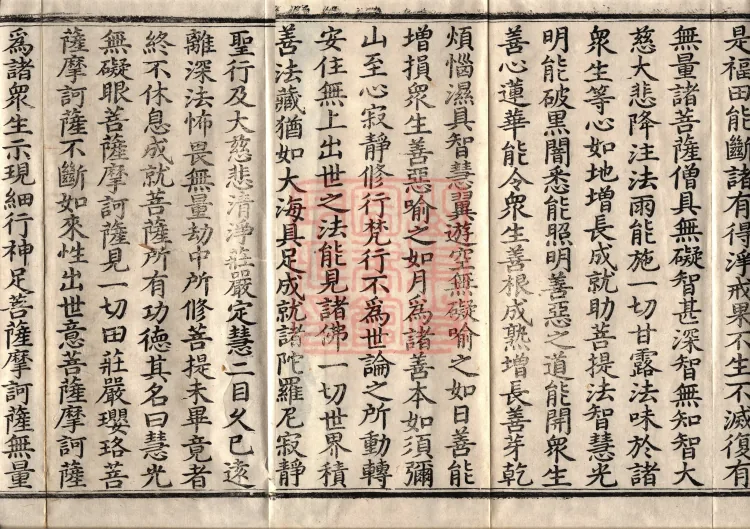 是福田能斷諸有得淨戒果不生不滅復有
無量諸菩薩僧具無礙智甚深智無知智大
慈大悲降注法雨能施一切甘露法味於諸
衆生等心如地增長成就助菩提法智慧光
明能破黑闇悉能照明善惡之道能開衆生
善心蓮華能令衆生善根成熟增長善芽乾
煩惱濕具智慧翼遊空無礙喻之如日善能
增損衆生善惡喻之如月爲諸善本如須彌
山至心寂靜修行梵行不爲世論之所動轉
安住無上出世之法能見諸佛一切世界積
善法藏猶如大海具足成就諸陀羅尼寂靜
聖行及大慈悲清淨莊嚴定慧二目久已遠
離深法怖畏無量劫中所修菩提未畢竟者
終不休息成就菩薩所有功德其名曰慧光
無礙眼菩薩摩訶薩見一切田莊嚴瓔珞菩
薩摩訶薩不斷如來性出世意菩薩摩訶薩
爲諸衆生示現細行神足菩薩摩訶薩無量